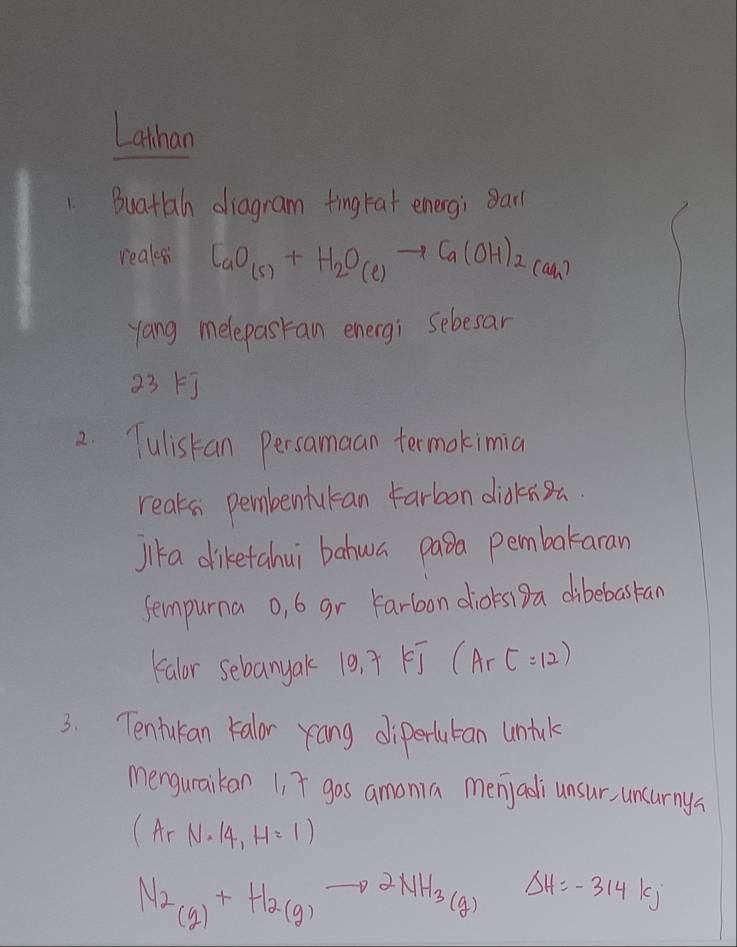 Latihan
1. Buatlah diagram tingkat energi dari
reaksi CaO(s) + H₂O(l) → Ca(OH)₂ (aq)
yang melepaskan energi sebesar
23 kJ
2. Tuliskan persamaan termokimia
reaksi pembentukan karbon dioksida.
Jika diketahui bahwa pada pembakaran
sempurna 0,6 gr karbon dioksida dibebaskan
kalor sebanyak 19,7 kJ (Ar C = 12)
3. Tentukan kalor yang diperlukan untuk
menguraikan 1,7 gas amonia menjadi unsur-unsurnya
(Ar N = 14, H = 1)
N₂(g) + H₂(g) → 2NH₃(g) ΔH = - 314 kj